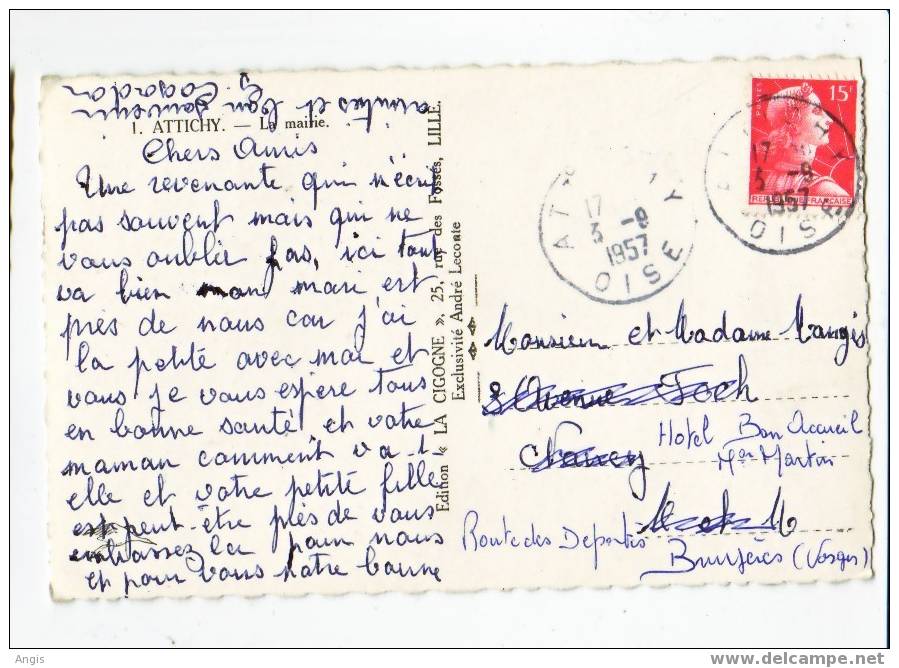 1. ATTICHY. — La mairie.
Chers Amis
Une revenante qui n'écrit
pas souvent mais qui ne
vous oublie pas, ici tout
va bien mon mari est
près de nous car j'ai
la petite avec moi et
vous je vous espère tous
en bonne santé et votre
maman comment va t
elle et votre petite fille
est peut-être près de vous
embrassez la pour nous
et pour vous notre bonne
amitiés et bon souvenir
Edition « LA CIGOGNE », 25, rue des Fossés, LILLE.
Exclusivité André Leconte
POSTES 15F
REPUBLIQUE FRANÇAISE
ATTICHY
17
3 -9
1957
OISE
17
3 -9
1957
OISE
Monsieur et Madame Mangis
3 Avenue Foch
Nancy
Hotel Bon Accueil
Mon Martin
M et M
Route des Deportés
Bruyères (Vosges)
Angis
delcampe.net